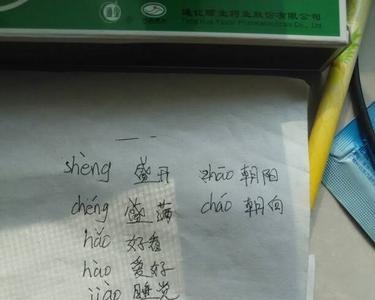 通化颐生药业股份有限公司
Tong Hua Yisheng Pharmaceutical Co., Ltd
一
shèng 盛开 zhāo 朝阳
chéng 盛满 cháo 朝向
hǎo 好看
hào 爱好
jiào 睡觉